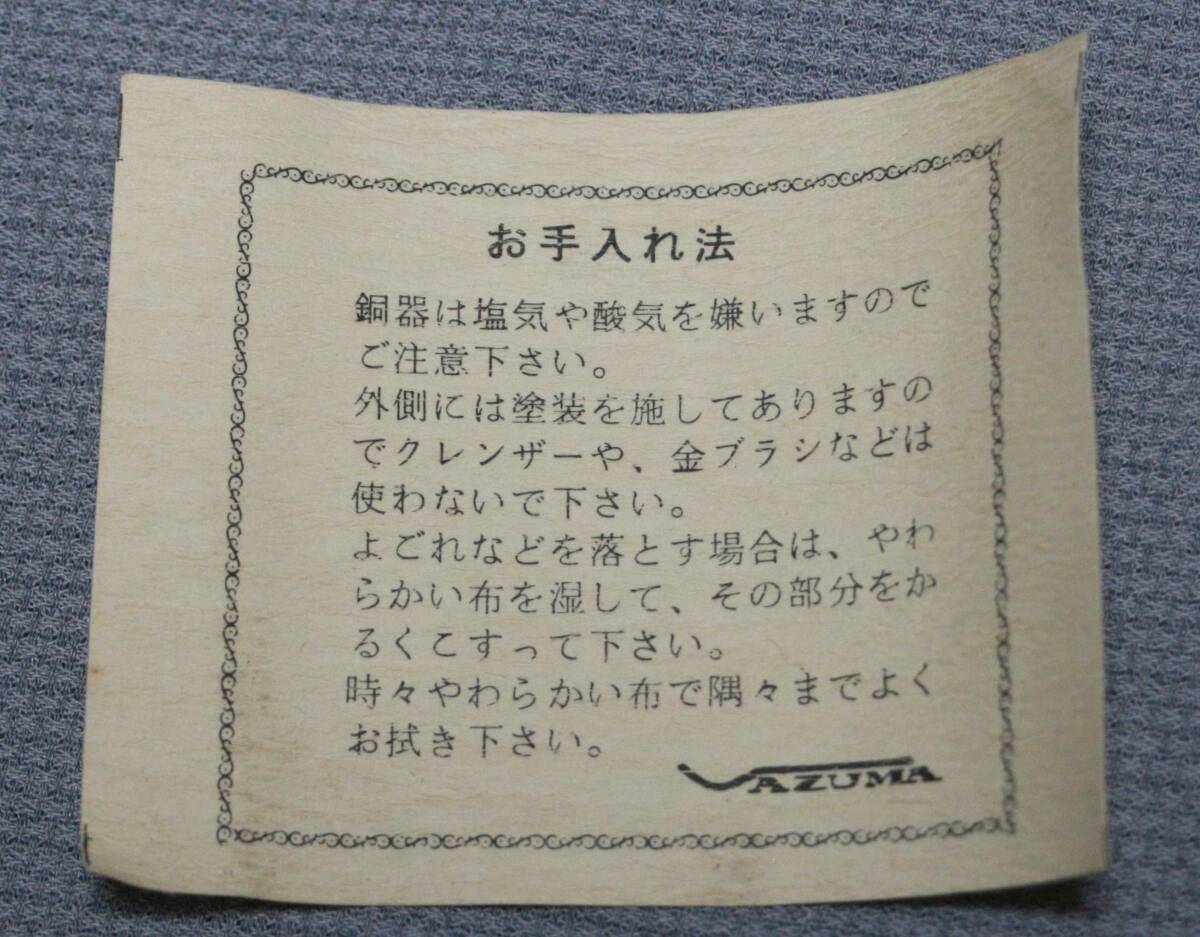 お手入れ法
銅器は塩気や酸気を嫌いますので
ご注意下さい。
外側には塗装を施してありますの
でクレンザーや、金ブラシなどは
使わないで下さい。
よごれなどを落とす場合は、やわ
らかい布を湿して、その部分をか
るくこすって下さい。
時々やわらかい布で隅々までよく
お拭き下さい。
AZUMA